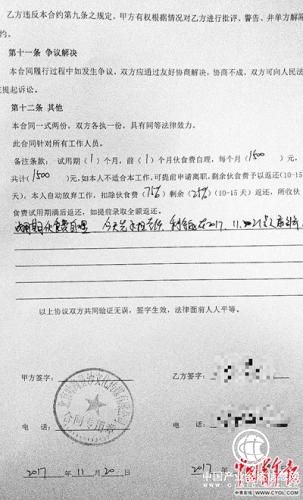 乙方违反本合约第九条之规定，甲方有权根据情况对乙方进行批评、警告、并单方解除
约。
第十一条 争议解决
本合同履行过程中如发生争议，双方应通过友好协商解决，协商不成，双方可向人民法
提起诉讼。
第十二条 其他
本合同一式两份，双方各执一份，具有同等法律效力。
此合同针对所有工作人员。
备注条款：试用期（1）个月，前（1）个月伙食费自理，每个月（1500）元，
共计（1500）元，如本人不适合本工作，可提前申请离职，剩余伙食费予以返还（10-15
天）。本人自动放弃工作，扣除伙食费（75%）剩余（25%）（10-15天）返还，所收伙
食费试用期满后返还，如提前录取全额返还。
试用期伙食费自理 今天
2017.11.
以上协议双方共同验证无误，签字生效，法律面前人人平等。
甲方签字：
乙方签字：
文化传
合同专用章
电话：
电话：
2017年11月20日
2017年
中国青年报
中青在线 WWW.CYOL.COM
中国产业